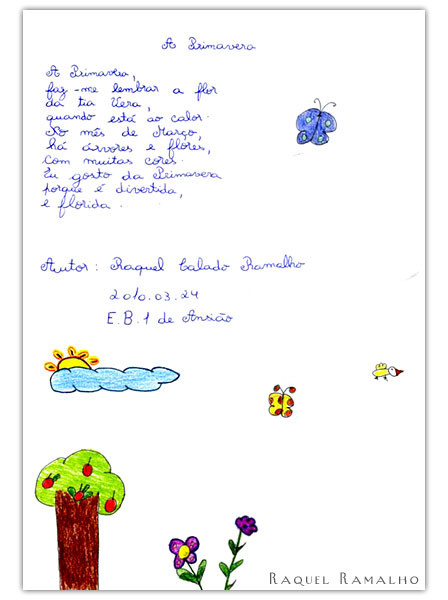 A Primavera
A Primavera,
faz-me lembrar a flor
da tia Vera,
quando está ao calor.
No mês de Março,
há árvores e flores,
com muitas cores.
Eu gosto da Primavera
porque é divertida,
e florida.
Autor: Raquel Calado Ramalho
2010.03.24
E.B.1 de Ansião
Raquel Ramalho